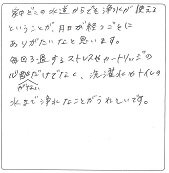 家中どこの水道からでも浄水が使える
ということが、月日が経つごとに
ありがたいなと思います。
毎回3〜置するストレスやカートリッジの
心配だけでなく、洗濯水やトイレの
がない
水まで浄水なことがうれしいです。